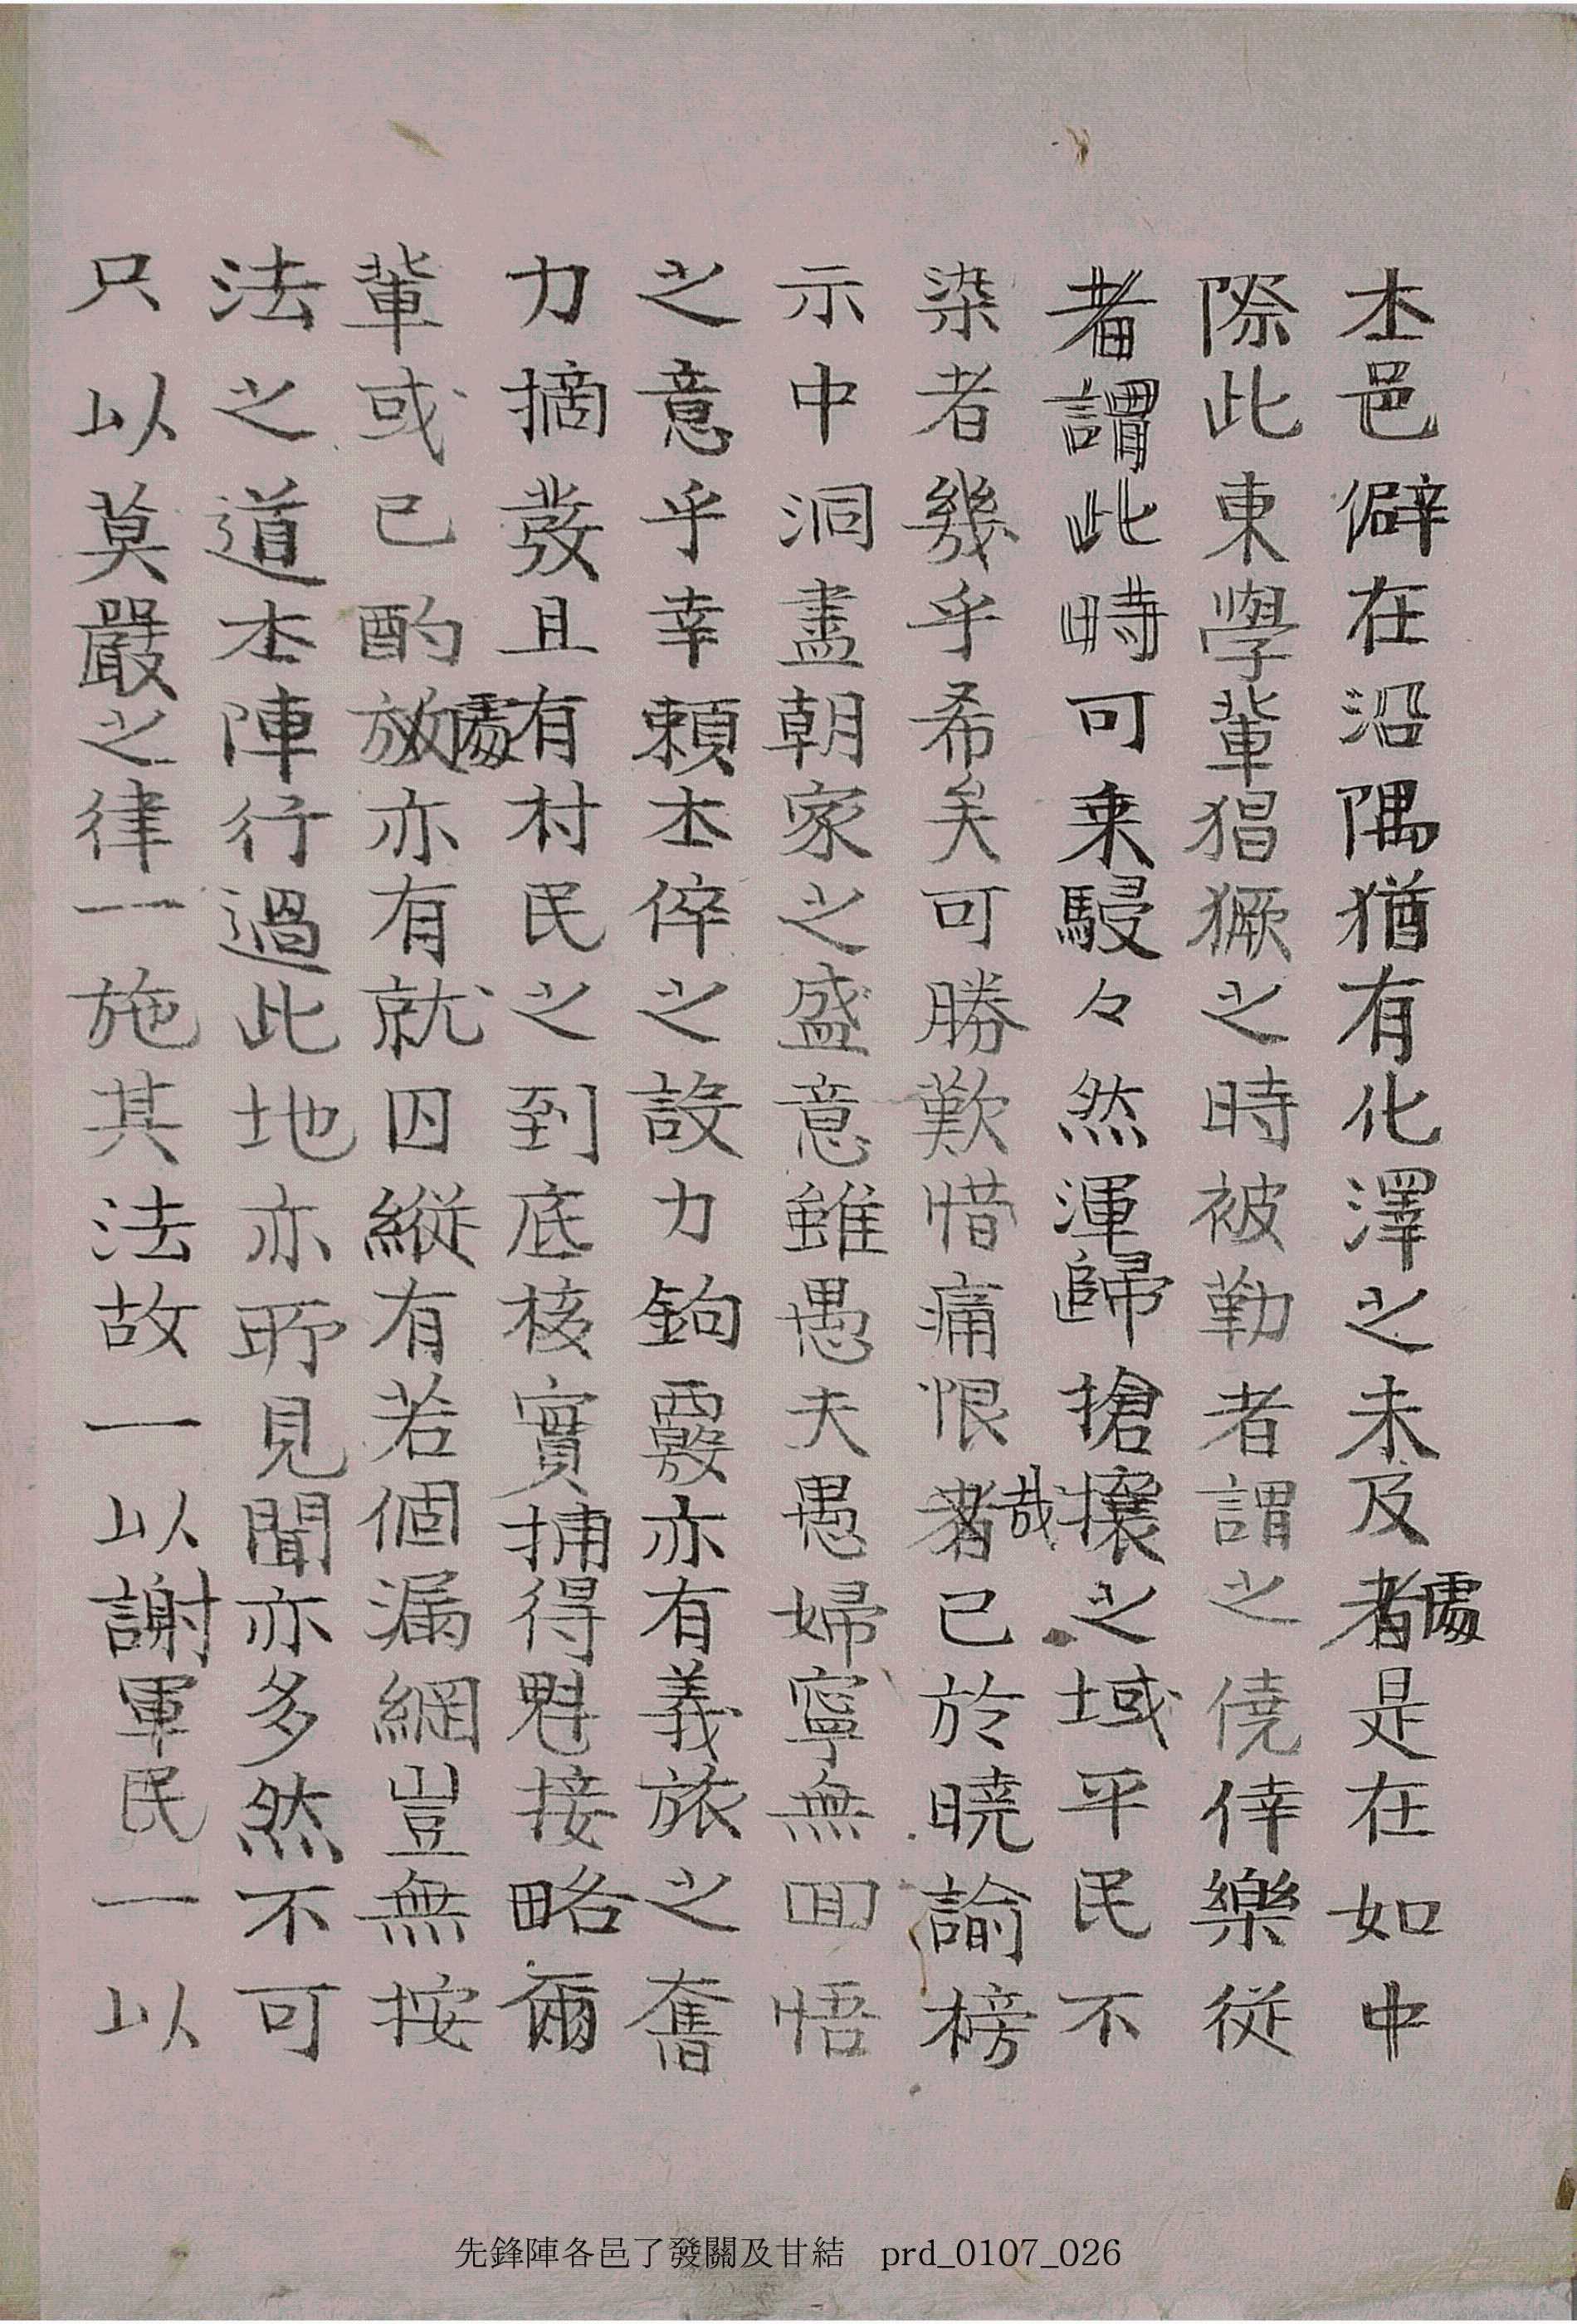 本邑僻在沿隅猶有化澤之未及者處是在如中
際此東學輩猖獗之時被勒者謂之僥倖樂從
者謂此時可乗駸々然渾歸搶攘之域平民不
染者幾乎希矣可勝歎惜痛恨者哉已於曉諭榜
示中洞盡朝家之盛意雖愚夫愚婦寧無回悟
之意乎幸賴本倅之設力鉤覈亦有義旅之奮
力摘發且有村民之到底核實捕得魁接略爾
輩或已酌放處亦有就囚縱有若個漏網豈無按
法之道本陣行過此地亦所見聞亦多然不可
只以莫嚴之律一施其法故一以謝軍民一以
先鋒陣各邑了發關及甘結 prd_0107_026